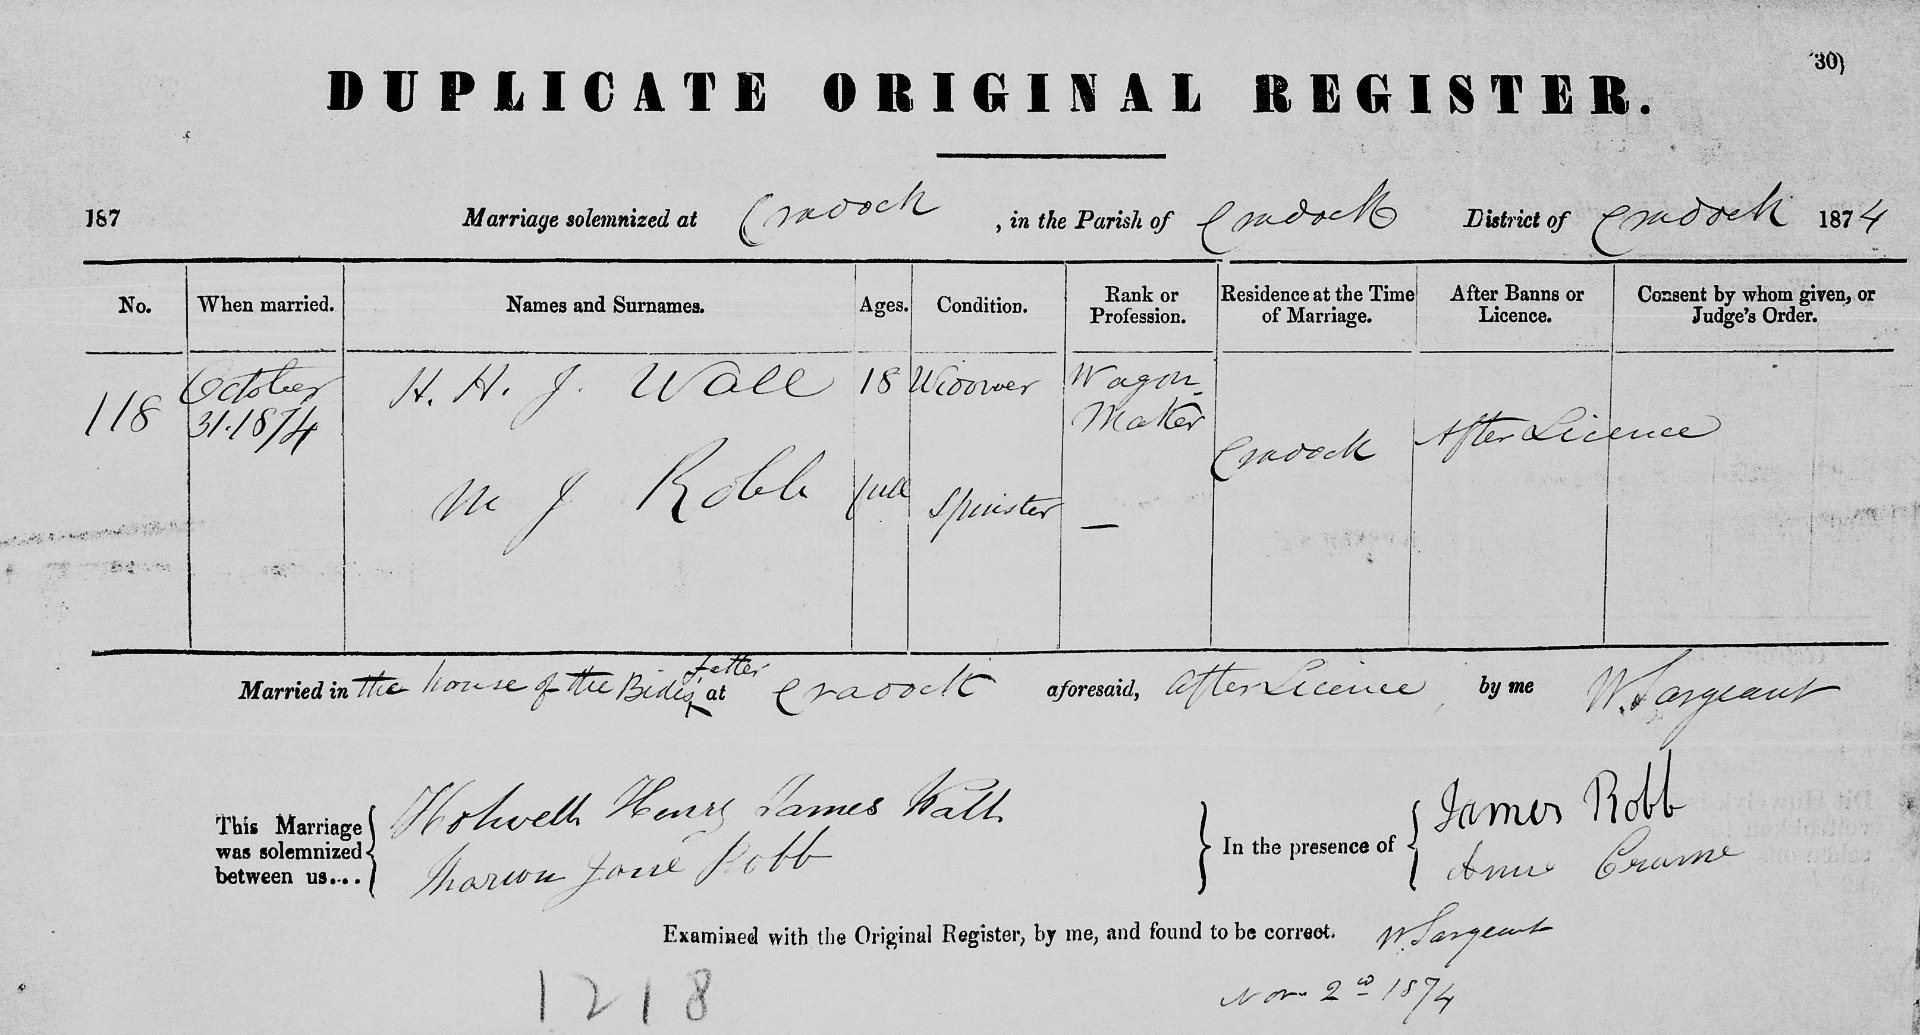 30)
DUPLICATE ORIGINAL REGISTER.
187 Marriage solemnized at Cradock , in the Parish of Cradock District of Cradock 1874
No. When married. Names and Surnames. Ages. Condition. Rank or Profession. Residence at the Time of Marriage. After Banns or Licence. Consent by whom given, or Judge's Order.
118 October 31. 1874 H. H. J. Wall 18 Widower Wagon Maker Cradock After Licence
M J Robb full Spinster —
Married in the house of the Bides Father at Cradock aforesaid, After Licence by me W. Sargeant
This Marriage was solemnized between us.... Holwell Henry James Wall
Marion Jane Robb
In the presence of James Robb
Annie
Examined with the Original Register, by me, and found to be correct. W. Sargeant
Nov 2nd 1874
1218